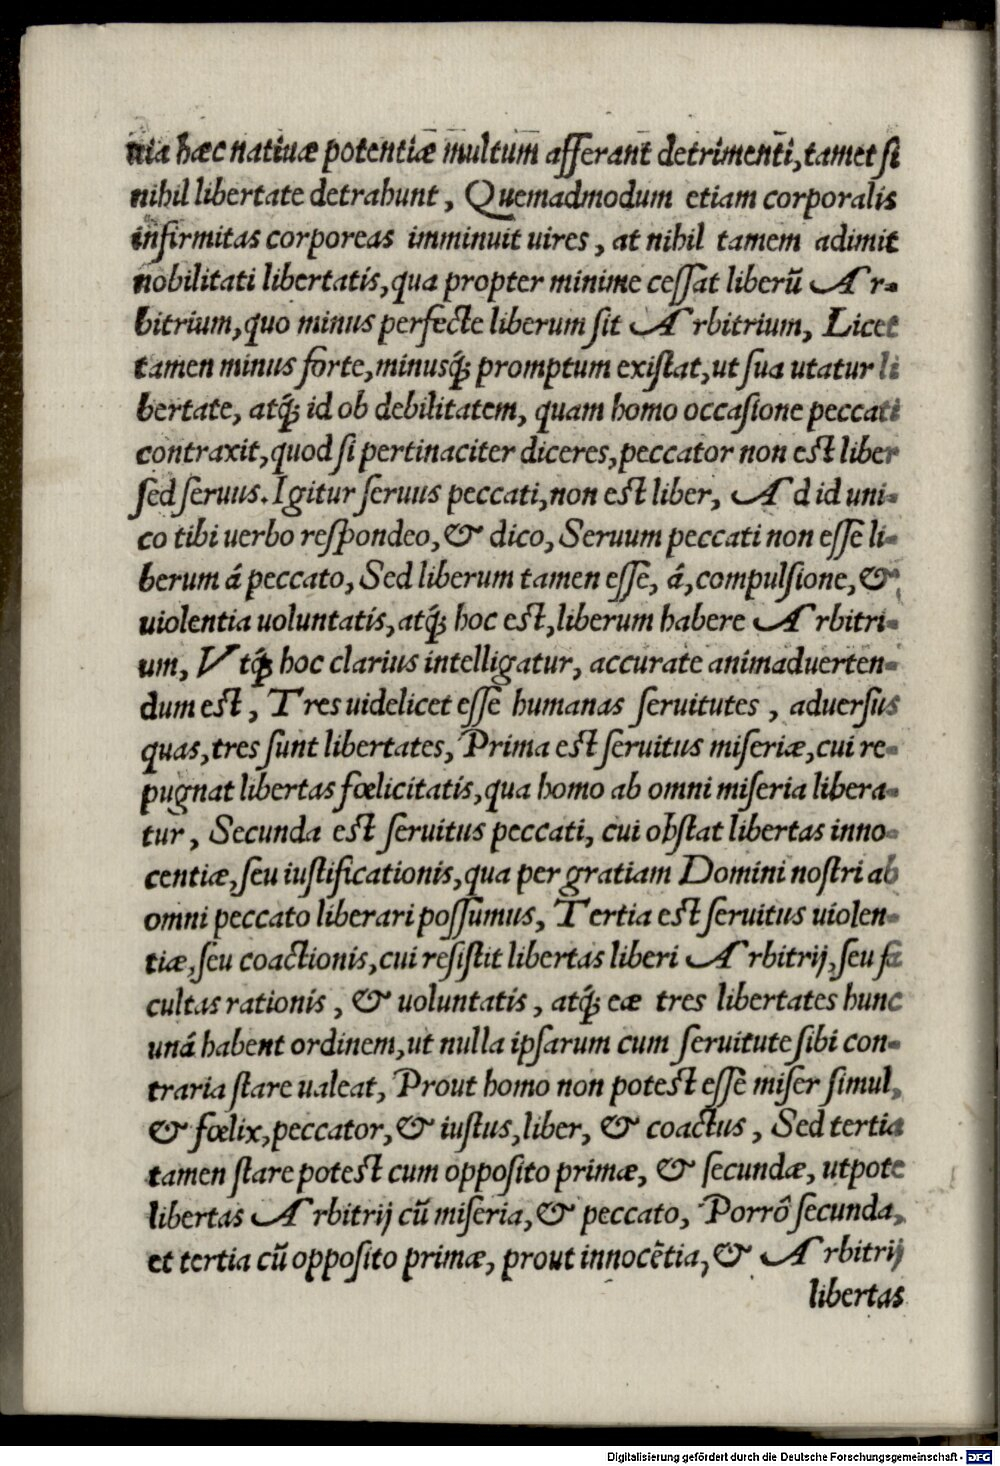 nia hæc natiuæ potentiæ multum afferant detrimenti, tamet si
nihil libertate detrahunt, Quemadmodum etiam corporalis
infirmitas corporeas imminuit uires, at nihil tamem adimit
nobilitati libertatis, qua propter minime cessat liberū Ar-
bitrium, quo minus perfecte liberum sit Arbitrium, Licet
tamen minus forte, minusq́; promptum existat, ut sua utatur li
bertate, atq́; id ob debilitatem, quam homo occasione peccati
contraxit, quod si pertinaciter diceres, peccator non est liber
sed seruus. Igitur seruus peccati, non est liber, Ad id uni-
co tibi uerbo respondeo, & dico, Seruum peccati non esse li-
berum á peccato, Sed liberum tamen esse, á, compulsione, &
uiolentia uoluntatis, atq́; hoc est, liberum habere Arbitri-
um, Vtq́; hoc clarius intelligatur, accurate animaduerten-
dum est, Tres uidelicet esse humanas seruitutes, aduersus
quas, tres sunt libertates, Prima est seruitus miseriæ, cui re-
pugnat libertas fœlicitatis, qua homo ab omni miseria libera-
tur, Secunda est seruitus peccati, cui obstat libertas inno-
centiæ, seu iustificationis, qua per gratiam Domini nostri ab
omni peccato liberari possumus, Tertia est seruitus uiolen-
tiæ, seu coactionis, cui resistit libertas liberi Arbitrij, seu fa
cultas rationis, & uoluntatis, atq́; eæ tres libertates hunc
uná habent ordinem, ut nulla ipsarum cum seruitute sibi con-
traria stare ualeat, Prout homo non potest esse miser simul,
& fœlix, peccator, & iustus, liber, & coactus, Sed tertia
tamen stare potest cum opposito primæ, & secundæ, utpote
libertas Arbitrij cū miseria, & peccato, Porrô secunda,
et tertia cū opposito primæ, prout innocētia, & Arbitrij
libertas
Digitalisierung gefördert durch die Deutsche Forschungsgemeinschaft - DFG